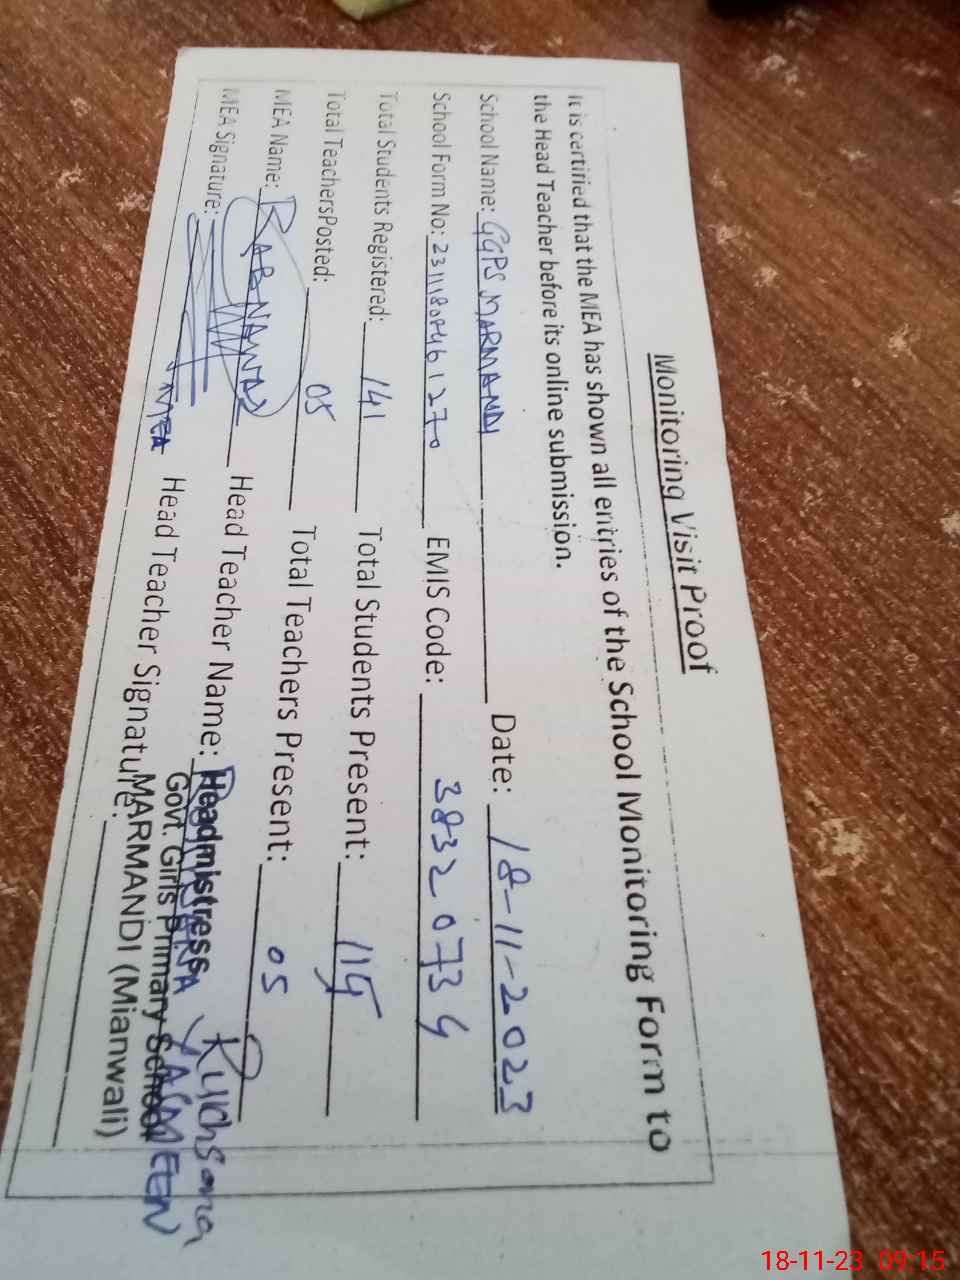 Monitoring Visit Proof
It is certified that the MEA has shown all entries of the School Monitoring Form to
the Head Teacher before its online submission.
School Name: GGPS MARMANDI Date: 18-11-2023
School Form No: EMIS Code: 38320734
Total Students Registered: 141 Total Students Present:
Total TeachersPosted: 05 Total Teachers Present: 05
MEA Name: RAB NAWAZ Head Teacher Name: YASMEEN
MEA Signature: MEA Head Teacher Signature: Rukhsana
Headmistress
Govt. Girls Primary School
MARMANDI (Mianwali)
18-11-23 09:15